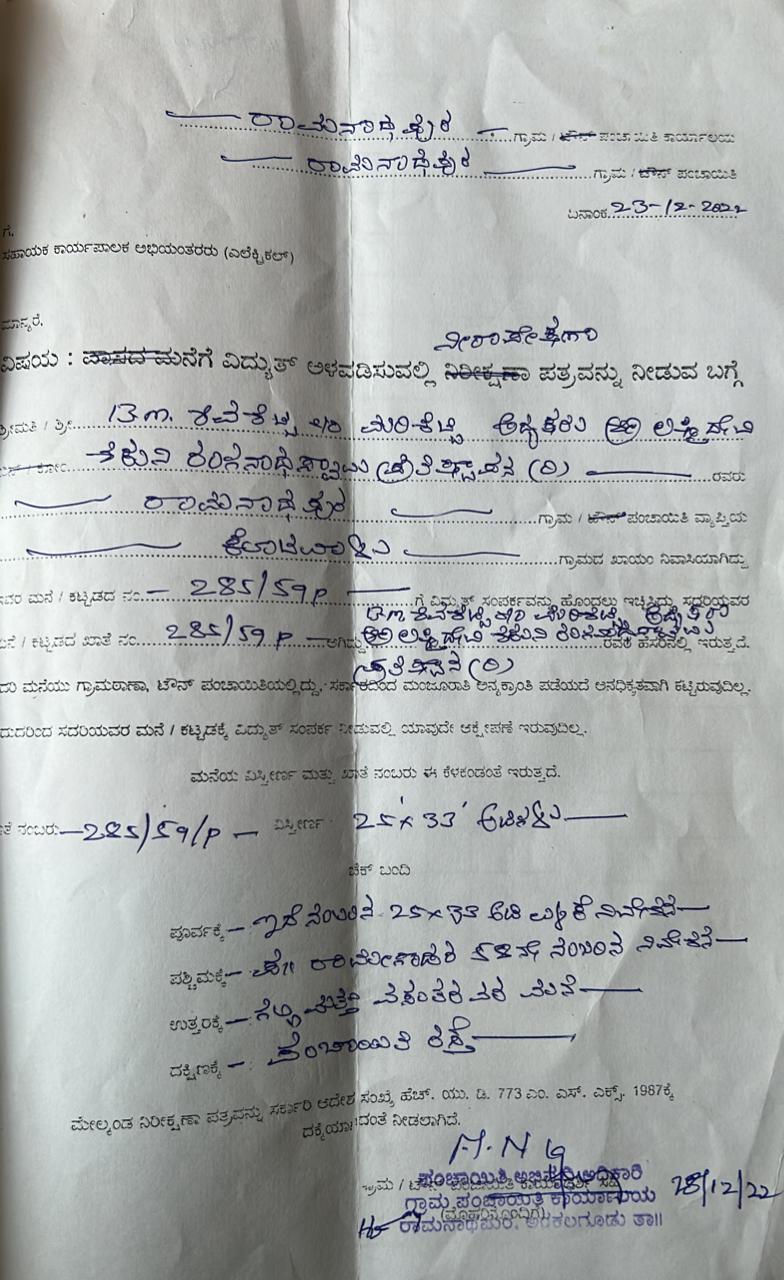 ರಾಮನಾಥಪುರ ಗ್ರಾಮ / ಟೌನ್ ಪಂಚಾಯಿತಿ ಕಾರ್ಯಾಲಯ
ರಾಮನಾಥಪುರ ಗ್ರಾಮ / ಟೌನ್ ಪಂಚಾಯಿತಿ
ದಿನಾಂಕ 23-12-2022
ಗೆ,
ಸಹಾಯಕ ಕಾರ್ಯಪಾಲಕ ಅಭಿಯಂತರರು (ಎಲೆಕ್ಟ್ರಿಕಲ್)
ಮಾನ್ಯರೆ,
ನಿರಾಪೇಕ್ಷಣಾ
ವಿಷಯ : ವಾಸದ ಮನೆಗೆ ವಿದ್ಯುತ್ ಅಳವಡಿಸುವಲ್ಲಿ ನಿರೀಕ್ಷಣಾ ಪತ್ರವನ್ನು ನೀಡುವ ಬಗ್ಗೆ
ಶ್ರೀಮತಿ / ಶ್ರೀ B.m. ಅಧ್ಯಕ್ಷರು ಶ್ರೀ ಲಕ್ಷ್ಮಿದೇವಿ
ರಂಗನಾಥಸ್ವಾಮಿ ಪ್ರತಿಷ್ಠಾಪನ (ರಿ) ರವರು
ರಾಮನಾಥಪುರ ಗ್ರಾಮ / ಟೌನ್ ಪಂಚಾಯಿತಿ ವ್ಯಾಪ್ತಿಯ
ಗ್ರಾಮದ ಖಾಯಂ ನಿವಾಸಿಯಾಗಿದ್ದು
ಇವರ ಮನೆ / ಕಟ್ಟಡದ ನಂ 285/59p ಗೆ ವಿದ್ಯುತ್ ಸಂಪರ್ಕವನ್ನು ಹೊಂದಲು ಇಚ್ಛಿಸಿದ್ದು ಸದರಿಯವರ
ಮನೆ / ಕಟ್ಟಡದ ಖಾತೆ ನಂ 285/59 p ಆಗಿದ್ದು ರವರ ಹೆಸರಿನಲ್ಲಿ ಇರುತ್ತದೆ.
ಪ್ರತಿಷ್ಠಾಪನ (ರಿ)
ಸದರಿ ಮನೆಯು ಗ್ರಾಮಠಾಣಾ, ಟೌನ್ ಪಂಚಾಯಿತಿಯಲ್ಲಿದ್ದು, ಸರ್ಕಾರದಿಂದ ಮಂಜೂರಾತಿ ಅನ್ಯಕ್ರಾಂತಿ ಪಡೆಯದೆ ಅನಧಿಕೃತವಾಗಿ ಕಟ್ಟಿರುವುದಿಲ್ಲ.
ಆದುದರಿಂದ ಸದರಿಯವರ ಮನೆ / ಕಟ್ಟಡಕ್ಕೆ ವಿದ್ಯುತ್ ಸಂಪರ್ಕ ನೀಡುವಲ್ಲಿ ಯಾವುದೇ ಆಕ್ಷೇಪಣೆ ಇರುವುದಿಲ್ಲ.
ಮನೆಯ ವಿಸ್ತೀರ್ಣ ಮತ್ತು ಖಾತೆ ನಂಬರು ಈ ಕೆಳಕಂಡಂತೆ ಇರುತ್ತದೆ.
ಖಾತೆ ನಂಬರು 285/59/p ವಿಸ್ತೀರ್ಣ 25' x 33' ಅಡಿಗಳು
ಚೆಕ್ ಬಂದಿ
ಪೂರ್ವಕ್ಕೆ ಇದೆ ನಂಬರಿನ 25x33 ಅಡಿ ನಿವೇಶನ
ಪಶ್ಚಿಮಕ್ಕೆ 58ನೇ ನಂಬರಿನ ನಿವೇಶನ
ಉತ್ತರಕ್ಕೆ ರವರ ಮನೆ
ದಕ್ಷಿಣಕ್ಕೆ ಪಂಚಾಯಿತಿ ರಸ್ತೆ
ಮೇಲ್ಕಂಡ ನಿರೀಕ್ಷಣಾ ಪತ್ರವನ್ನು ಸರ್ಕಾರಿ ಆದೇಶ ಸಂಖ್ಯೆ ಹೆಚ್. ಯು. ಡಿ. 773 ಎಂ. ಎಸ್. ಎಕ್ಸ್. 1987ಕ್ಕೆ
ನೀಡಲಾಗಿದೆ.
ಪಂಚಾಯಿತಿ ಅಭಿವೃದ್ಧಿ ಅಧಿಕಾರಿ
ಗ್ರಾಮ ಪಂಚಾಯಿತಿ ಕಾರ್ಯಾಲಯ 28/12/22
ರಾಮನಾಥಪುರ, ಅರಕಲಗೂಡು ತಾ॥